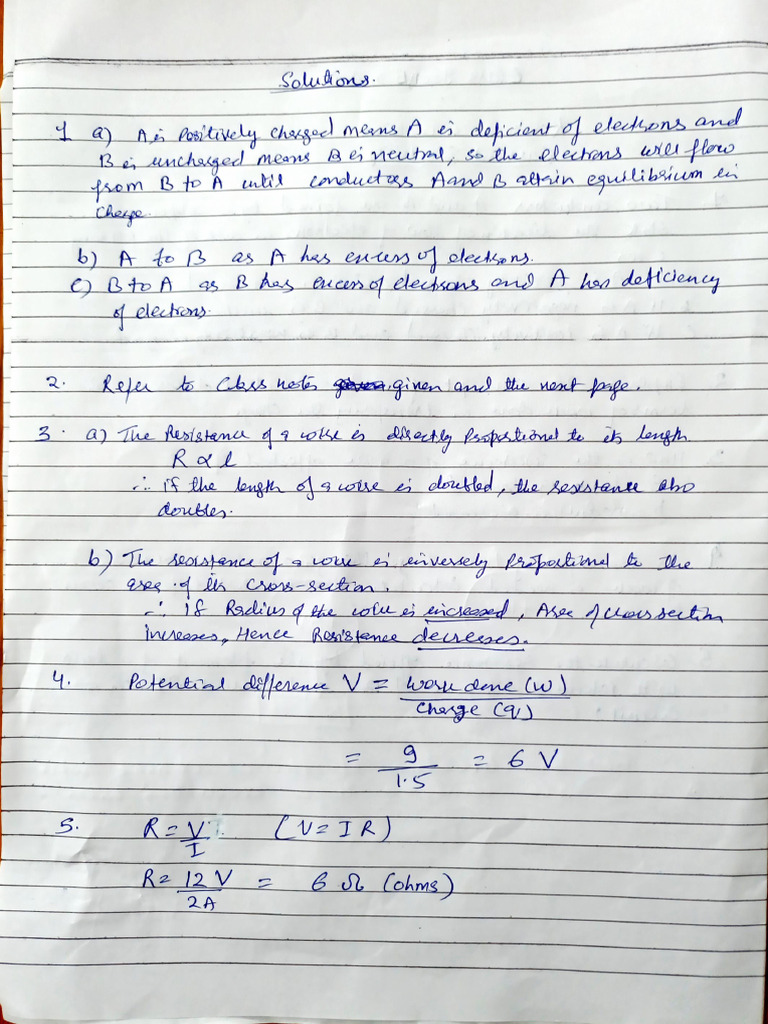 Solutions.
1 a) A is Positively charged means A is deficient of electrons and
B is uncharged means B is neutral, so the electrons will flow
from B to A until conductors A and B attain equilibrium in
charge.
b) A to B as A has excess of electrons.
c) B to A as B has excess of electrons and A has deficiency
of electrons.
2. Refer to Class notes given and the next page.
3. a) The Resistance of a wire is directly proportional to its length
R ∝ l
∴ if the length of a wire is doubled, the resistance also
doubles.
b) The resistance of a wire is inversely proportional to the
area of its cross-section.
∴ if Radius of the wire is increased, Area of cross section
increases, Hence Resistance decreases.
4. Potential difference V = work done (W)
Charge (q)
= 9 = 6 V
1.5
5. R = V (V = I R)
I
R = 12 V = 6 Ω (ohms)
2A